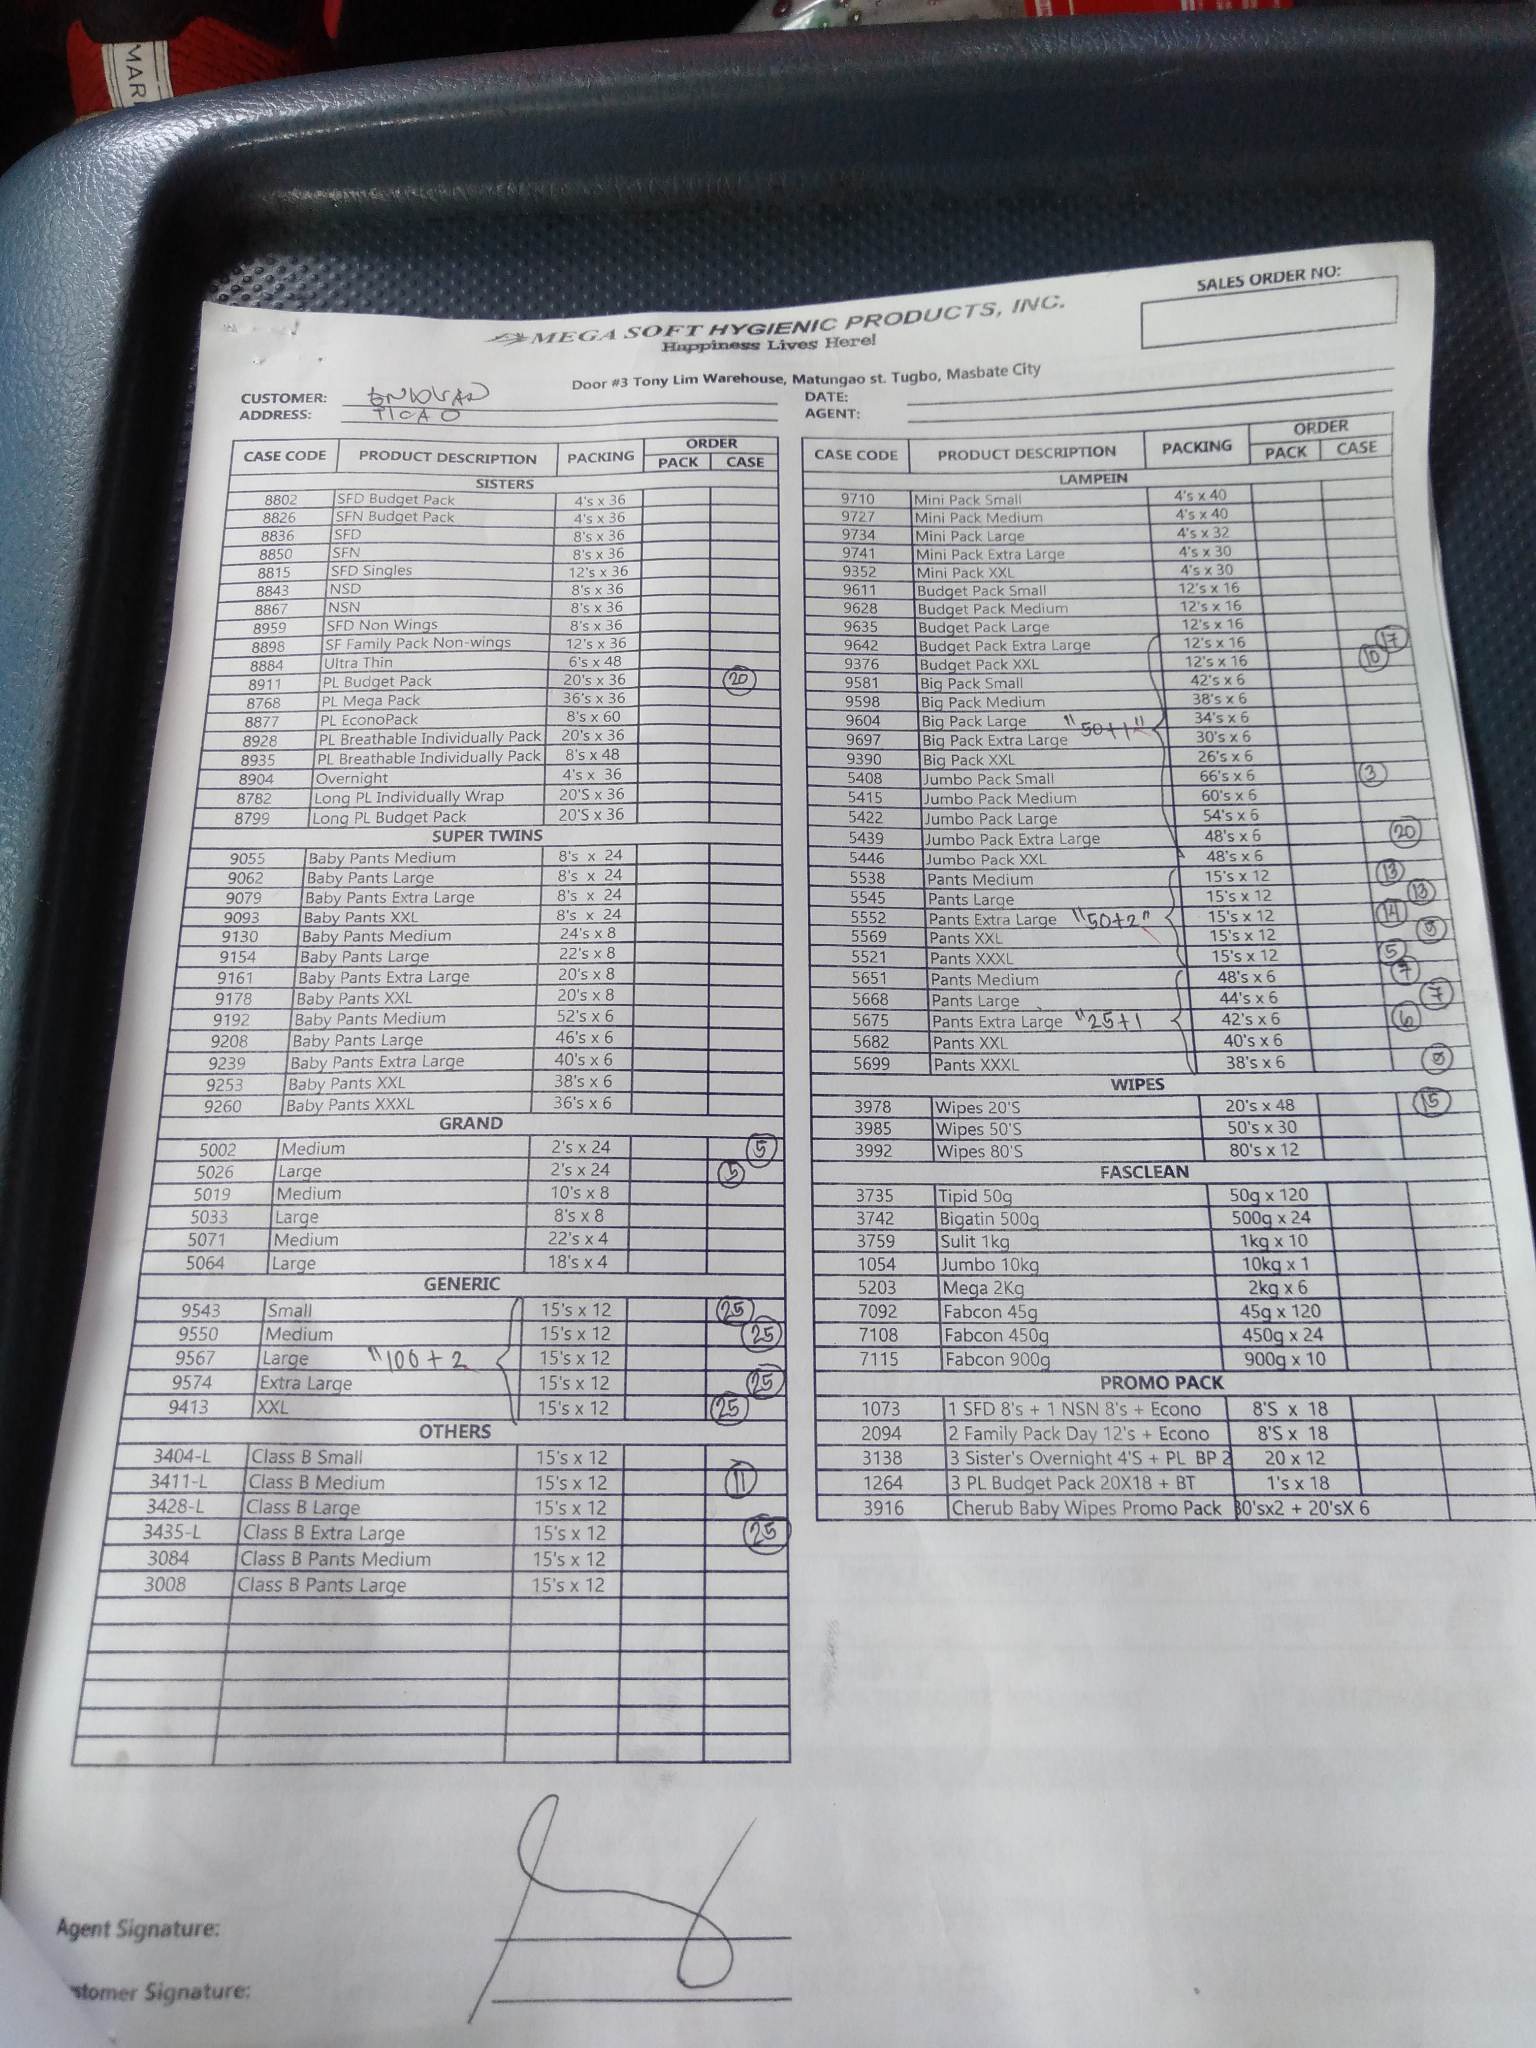 MARI
SALES ORDER NO:
MEGA SOFT HYGIENIC PRODUCTS, INC.
Happiness Lives Here!
Door #3 Tony Lim Warehouse, Matungao st. Tugbo, Masbate City
CUSTOMER:
ADDRESS: TICAO
DATE:
AGENT:
CASE CODE PRODUCT DESCRIPTION PACKING ORDER
PACK CASE
SISTERS
8802 SFD Budget Pack 4's x 36
8826 SFN Budget Pack 4's x 36
8836 SFD 8's x 36
8850 SFN 8's x 36
8815 SFD Singles 12's x 36
8843 NSD 8's x 36
8867 NSN 8's x 36
8959 SFD Non Wings 8's x 36
8898 SF Family Pack Non-wings 12's x 36
8884 Ultra Thin 6's x 48
8911 PL Budget Pack 20's x 36 20
8768 PL Mega Pack 36's x 36
8877 PL EconoPack 8's x 60
8928 PL Breathable Individually Pack 20's x 36
8935 PL Breathable Individually Pack 8's x 48
8904 Overnight 4's x 36
8782 Long PL Individually Wrap 20'S x 36
8799 Long PL Budget Pack 20'S x 36
SUPER TWINS
9055 Baby Pants Medium 8's x 24
9062 Baby Pants Large 8's x 24
9079 Baby Pants Extra Large 8's x 24
9093 Baby Pants XXL 8's x 24
9130 Baby Pants Medium 24's x 8
9154 Baby Pants Large 22's x 8
9161 Baby Pants Extra Large 20's x 8
9178 Baby Pants XXL 20's x 8
9192 Baby Pants Medium 52's x 6
9208 Baby Pants Large 46's x 6
9239 Baby Pants Extra Large 40's x 6
9253 Baby Pants XXL 38's x 6
9260 Baby Pants XXXL 36's x 6
GRAND
5002 Medium 2's x 24 5
5026 Large 2's x 24 5
5019 Medium 10's x 8
5033 Large 8's x 8
5071 Medium 22's x 4
5064 Large 18's x 4
GENERIC
9543 Small 15's x 12 25
9550 Medium 15's x 12 25
9567 Large "100+2 15's x 12
9574 Extra Large 15's x 12 25
9413 XXL 15's x 12 25
OTHERS
3404-L Class B Small 15's x 12
3411-L Class B Medium 15's x 12 11
3428-L Class B Large 15's x 12
3435-L Class B Extra Large 15's x 12 25
3084 Class B Pants Medium 15's x 12
3008 Class B Pants Large 15's x 12
Agent Signature:
stomer Signature:
CASE CODE PRODUCT DESCRIPTION PACKING ORDER
PACK CASE
LAMPEIN
9710 Mini Pack Small 4's x 40
9727 Mini Pack Medium 4's x 40
9734 Mini Pack Large 4's x 32
9741 Mini Pack Extra Large 4's x 30
9352 Mini Pack XXL 4's x 30
9611 Budget Pack Small 12's x 16
9628 Budget Pack Medium 12's x 16
9635 Budget Pack Large 12's x 16
9642 Budget Pack Extra Large 12's x 16 17
9376 Budget Pack XXL 12's x 16 10
9581 Big Pack Small 42's x 6
9598 Big Pack Medium 38's x 6
9604 Big Pack Large "50+1" 34's x 6
9697 Big Pack Extra Large 30's x 6
9390 Big Pack XXL 26's x 6
5408 Jumbo Pack Small 66's x 6 3
5415 Jumbo Pack Medium 60's x 6
5422 Jumbo Pack Large 54's x 6
5439 Jumbo Pack Extra Large 48's x 6 20
5446 Jumbo Pack XXL 48's x 6
5538 Pants Medium 15's x 12 13
5545 Pants Large 15's x 12 13
5552 Pants Extra Large "50+2" 15's x 12 14
5569 Pants XXL 15's x 12
5521 Pants XXXL 15's x 12 5
5651 Pants Medium 48's x 6 7
5668 Pants Large 44's x 6 7
5675 Pants Extra Large "25+1 42's x 6 6
5682 Pants XXL 40's x 6
5699 Pants XXXL 38's x 6
WIPES
3978 Wipes 20'S 20's x 48 15
3985 Wipes 50'S 50's x 30
3992 Wipes 80'S 80's x 12
FASCLEAN
3735 Tipid 50g 50g x 120
3742 Bigatin 500g 500g x 24
3759 Sulit 1kg 1kg x 10
1054 Jumbo 10kg 10kg x 1
5203 Mega 2Kg 2kg x 6
7092 Fabcon 45g 45g x 120
7108 Fabcon 450g 450g x 24
7115 Fabcon 900g 900g x 10
PROMO PACK
1073 1 SFD 8's + 1 NSN 8's + Econo 8'S x 18
2094 2 Family Pack Day 12's + Econo 8'S x 18
3138 3 Sister's Overnight 4'S + PL BP 2 20 x 12
1264 3 PL Budget Pack 20X18 + BT 1's x 18
3916 Cherub Baby Wipes Promo Pack 80'sx2 + 20'sX 6